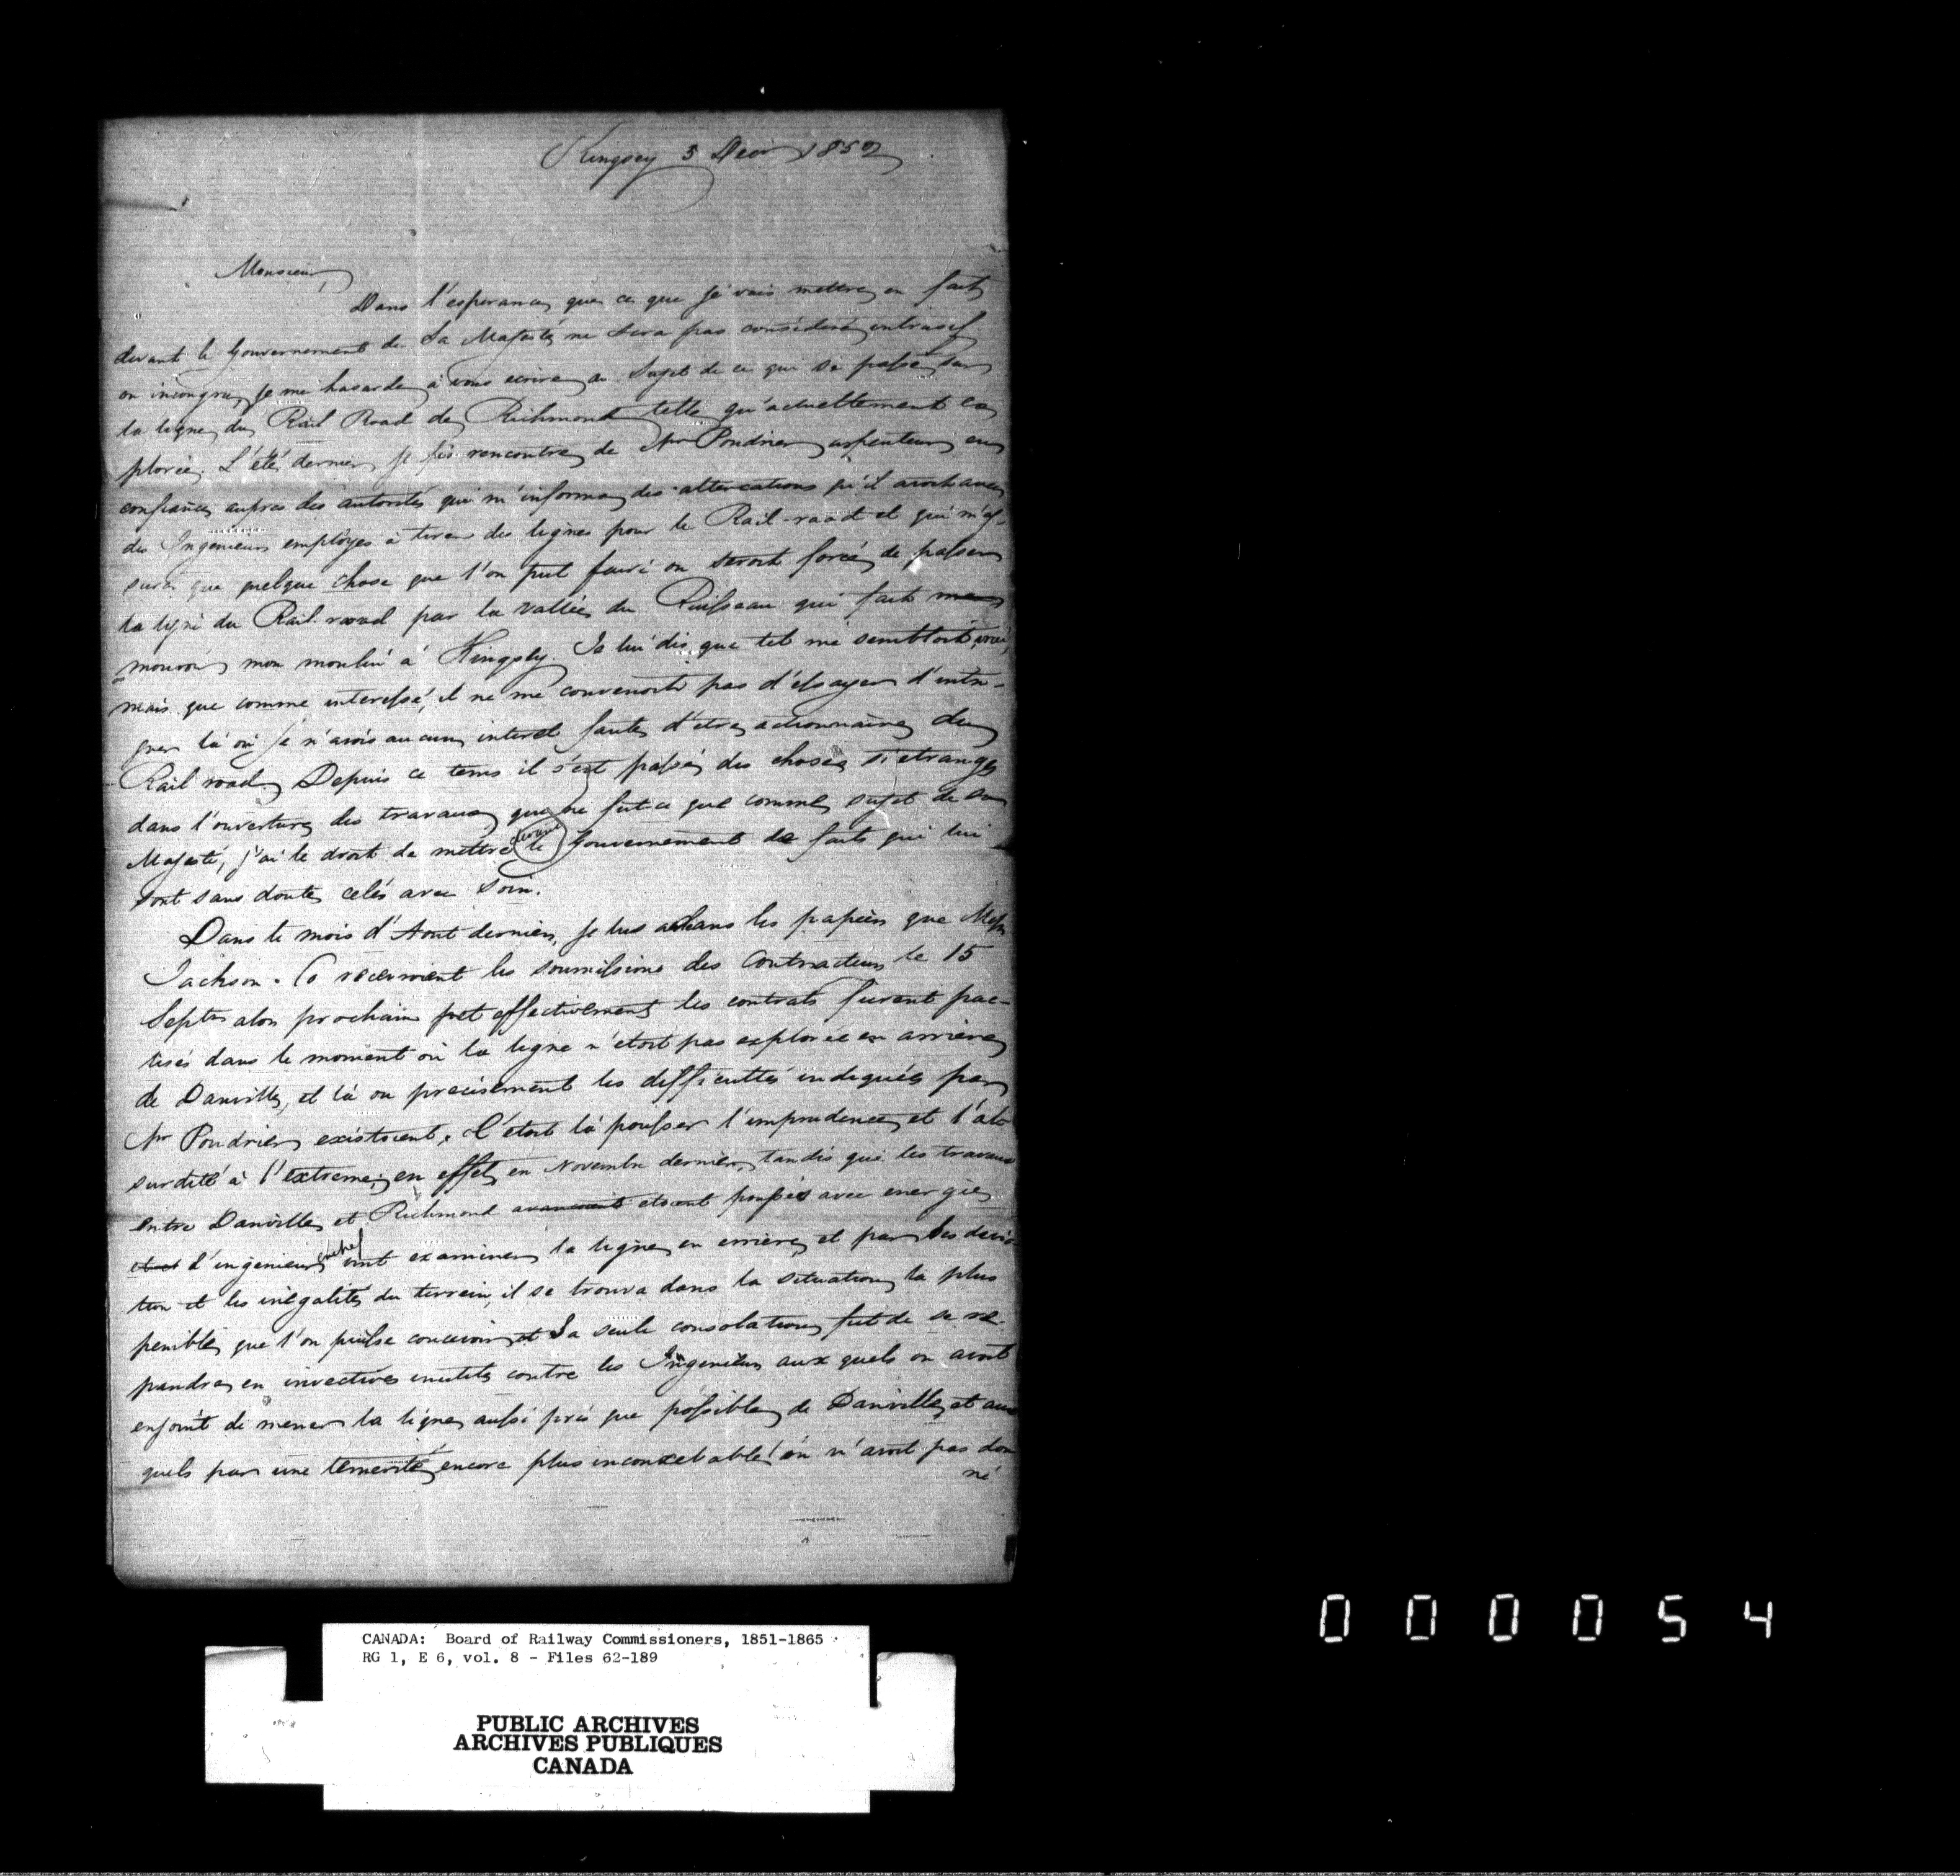 Kingsey 3 Decr 1852
Monsieur,
Dans l'esperance que ce que je vais mettre en fait
devant le Gouvernement de Sa Majesté ne sera pas consideré intrusif
ou incongru, je me hasarde à vous ecrire au Sujet de ce qui se passe sur
la ligne du Rail Road de Richmond telle qu'actuellement ex
plorée. L'été dernier je fis rencontre de Mr Poudrier arpenteur en
confiance aupres des autorités qui m'informa des altercations qu'il avoit avec
des Ingenieurs employes à tirer des lignes pour le Rail-road et qui m'as-
sura que quelque chose que l'on put faire on seroit forcé de passer
la ligne du Rail-road par la vallée du Ruisseau qui fait
mouvoir mon moulin à Kingsey. Je lui dis que tel me sembloit vrai,
mais que comme interessé, il ne me convenoit pas d'essayer d'intri-
guer là où je n'avois aucun interet faute d'etre actionnaire du
Rail road. Depuis ce tems il s'est passé des choses si etranges
dans l'ouverture des travaux que ne fut-ce que comme sujet de sa
Majesté, j'ai le droit de mettre devant le Gouvernement de faits qui lui
sont sans doute celés avec soin.
Dans le mois d'Aout dernier, je lus dans les papiers que Messrs
Jackson & Co recevroient les soumissions des Contracteurs le 15
Septr alors prochain et effectivement les contrats furent pac-
tisés dans le moment où la ligne n'étoit pas explorée en arriere
de Danville, et là ou precisement les difficultés indiquées par
Mr Poudrier existoient. C'étoit là pousser l'imprudence et l'ab
surdité à l'extreme; en effet, en Novembre dernier, tandis que les travaux
entre Danville et Richmond avancoient etoient poussés avec energie
l'ingenieur en chef vint examiner la ligne en arriere, et par les devia
tion et les inégalités du terrein, il se trouva dans la situation la plus
penible que l'on puisse concevoir, et sa seule consolation fut de se re-
pandre en invectives inutiles contre les Ingenieurs aux quels on avoit
enjoint de mener la ligne aussi près que possible de Danville, et aux
quels par une temerité encore plus inconcebable! on n'avoit pas don
né
CANADA: Board of Railway Commissioners, 1851-1865
RG 1, E 6, vol. 8 - Files 62-189
PUBLIC ARCHIVES
ARCHIVES PUBLIQUES
CANADA
000054